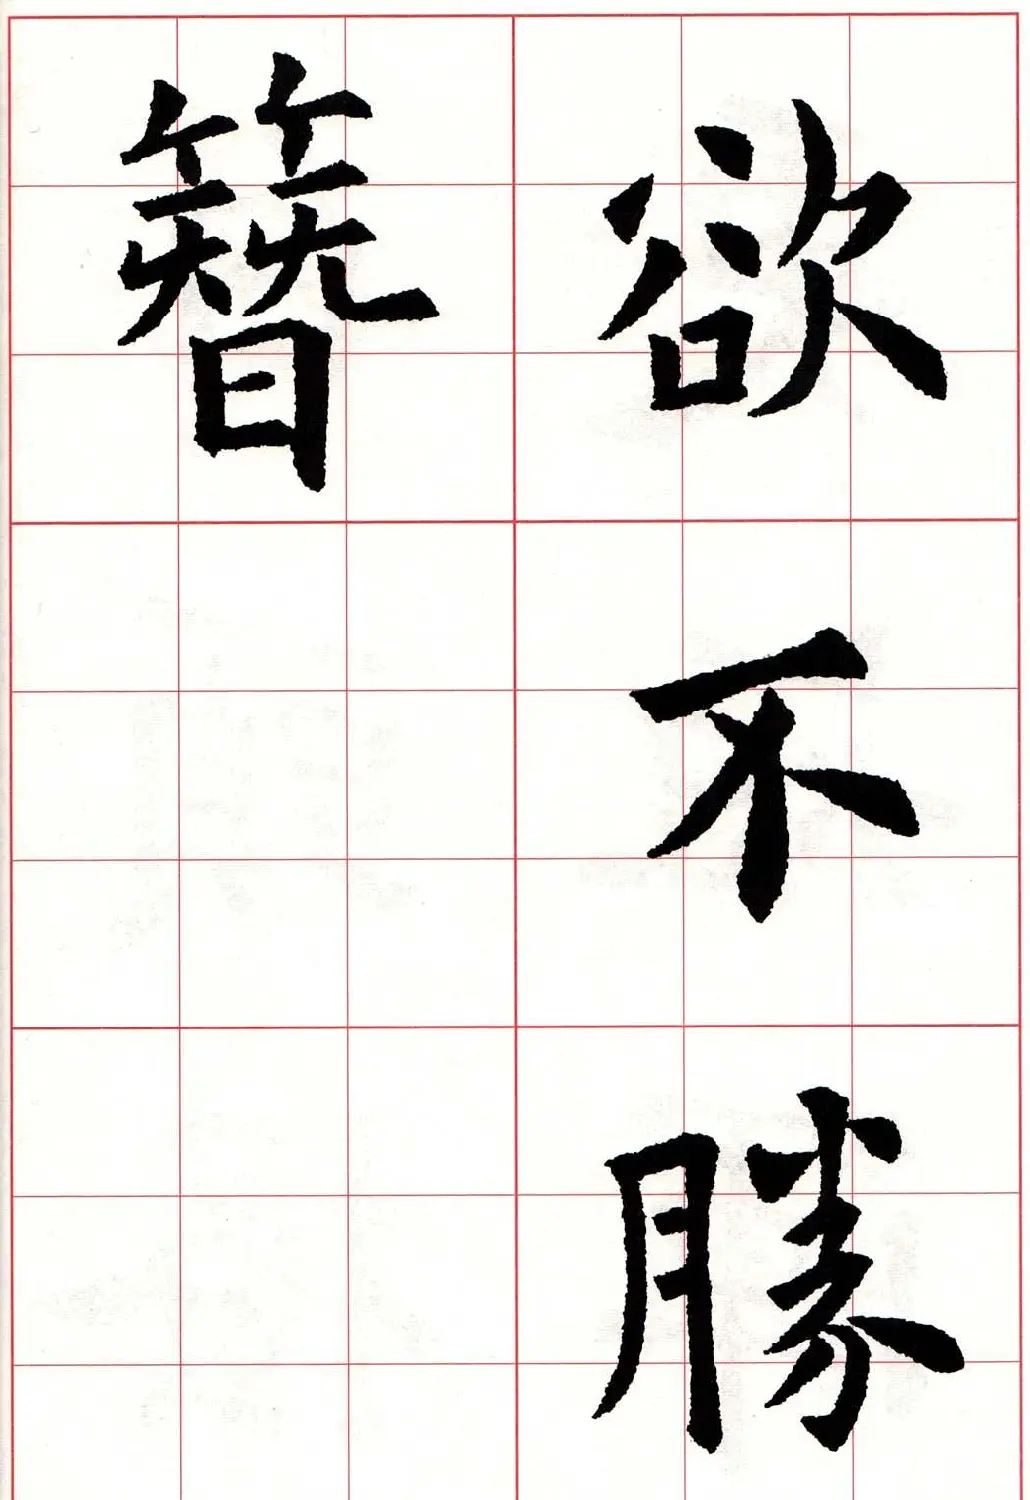 欲不勝
簪